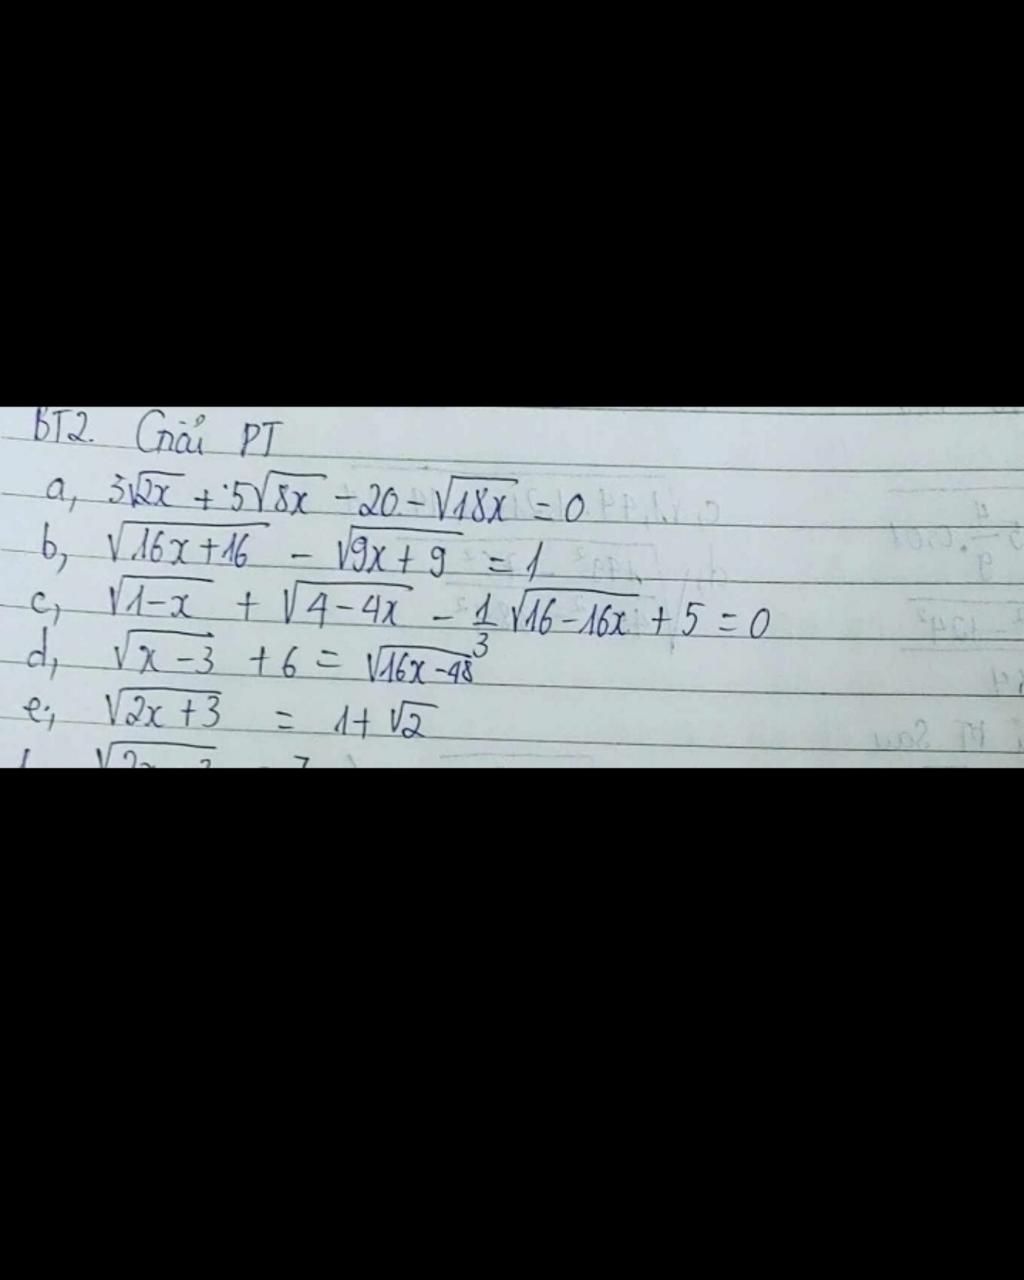 BT2. Giải PT
a, 3√2x + 5√8x - 20 - √18x = 0
b, √16x+16 - √9x+9 = 1
c, √1-x + √4-4x - 1/3 √16-16x + 5 = 0
d, √x-3 + 6 = √16x-48
e, √2x+3 = 1+√2